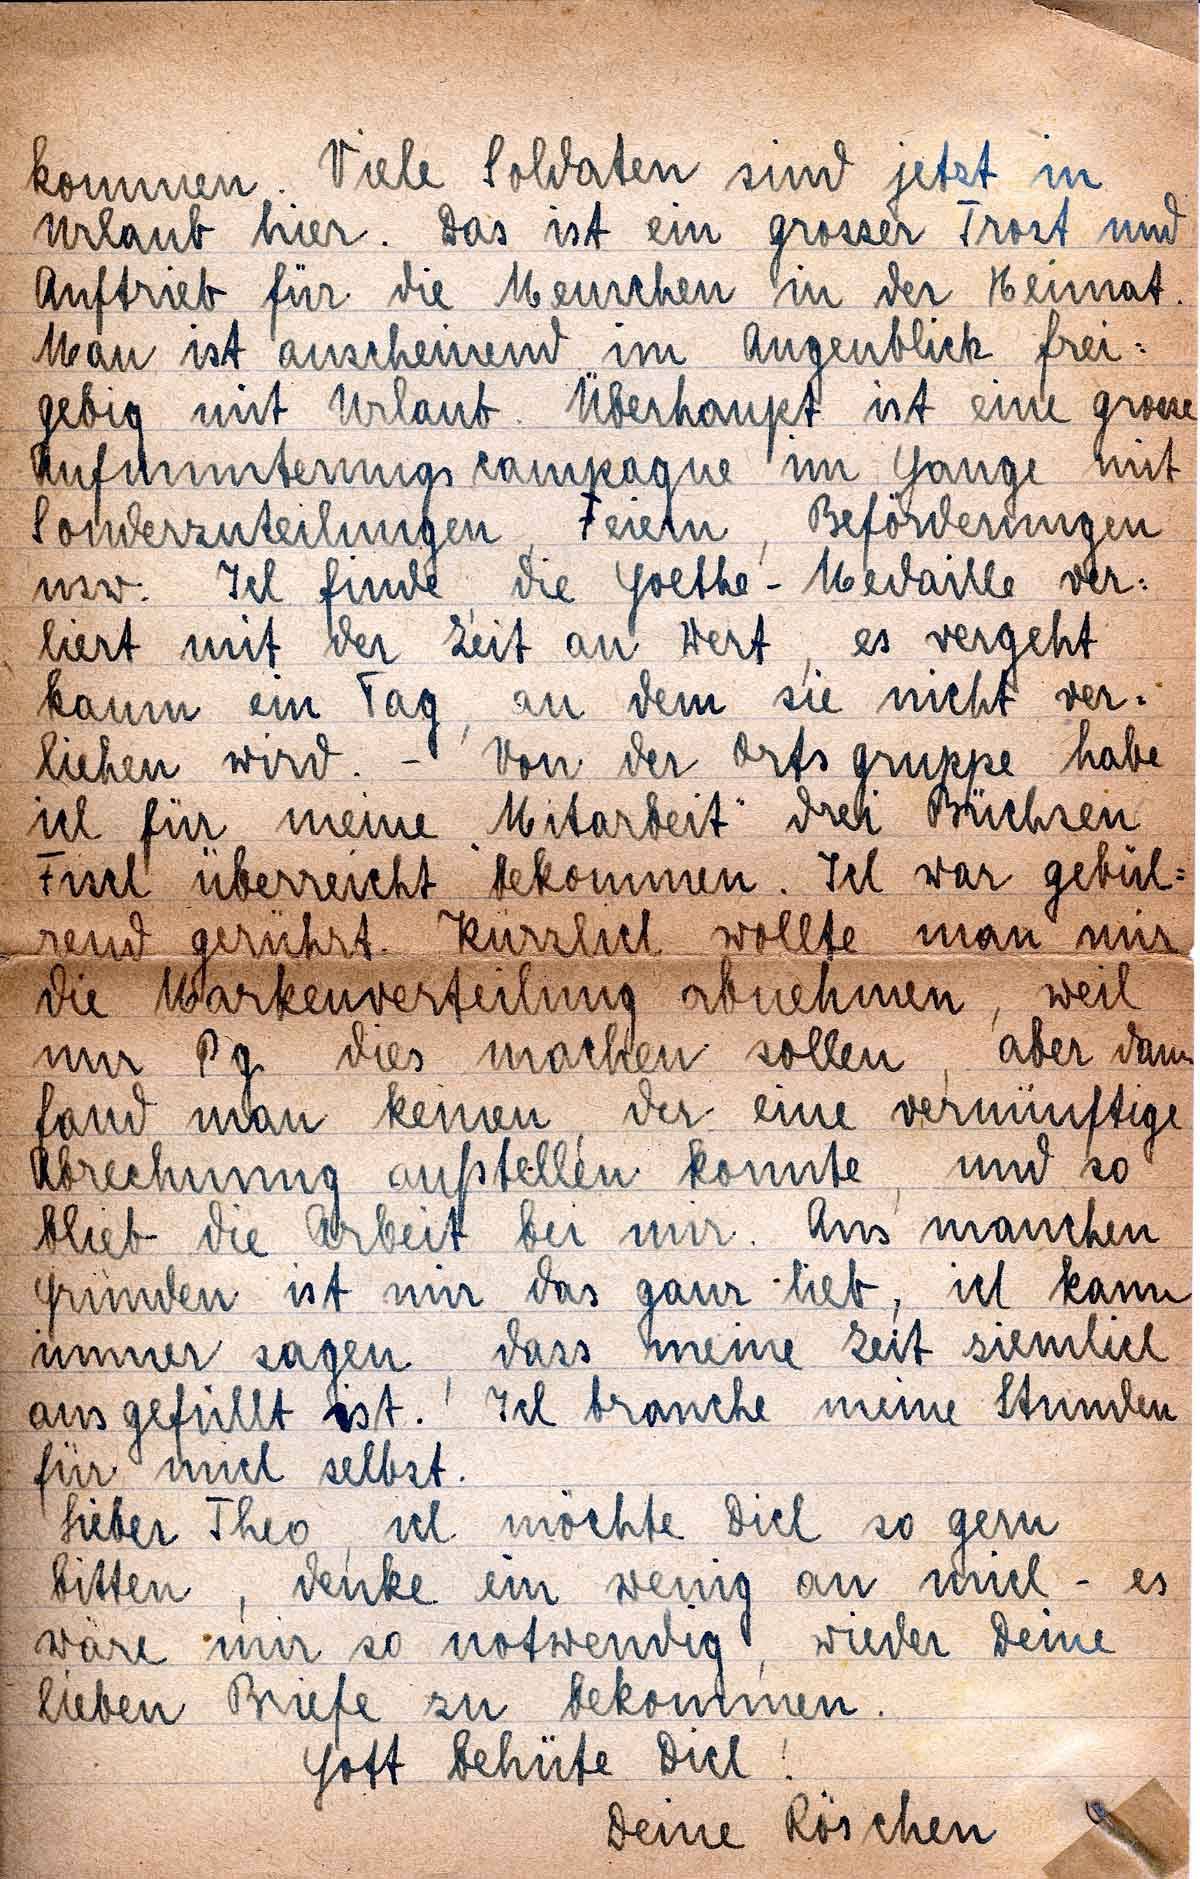 kommen. Viele Soldaten sind jetzt in
Urlaub hier. Das ist ein grosser Trost und
Auftrieb für die Menschen in der Heimat.
Man ist anscheinend im Augenblick frei=
gebig mit Urlaub. Überhaupt ist eine grosse
Aufmunterungscampagne im Gange mit
Sonderzuteilungen, Feiern, Beförderungen
usw. Ich finde, die Goethe-Medaille ver=
liert mit der Zeit an Wert, es vergeht
kaum ein Tag, an dem sie nicht ver=
liehen wird. - Von der Ortsgruppe habe
ich für meine "Mitarbeit" drei Büchsen
Fisch überreicht bekommen. Ich war gebüh=
rend gerührt. Kürzlich wollte man mir
die Markenverteilung abnehmen, weil
nur Pg. dies machen sollen, aber dann
fand man keinen, der eine vernünftige
Abrechnung aufstellen konnte, und so
blieb die Arbeit bei mir. Aus manchen
Gründen ist mir das ganz lieb, ich kann
immer sagen, dass meine Zeit ziemlich
ausgefüllt ist.! Ich brauche meine Stunden
für mich selbst.
Lieber Theo, ich möchte Dich so gern
bitten, denke ein wenig an mich - es
wäre mir so notwendig, wieder Deine
lieben Briefe zu bekommen.
Gott behüte Dich!
Deine Röschen